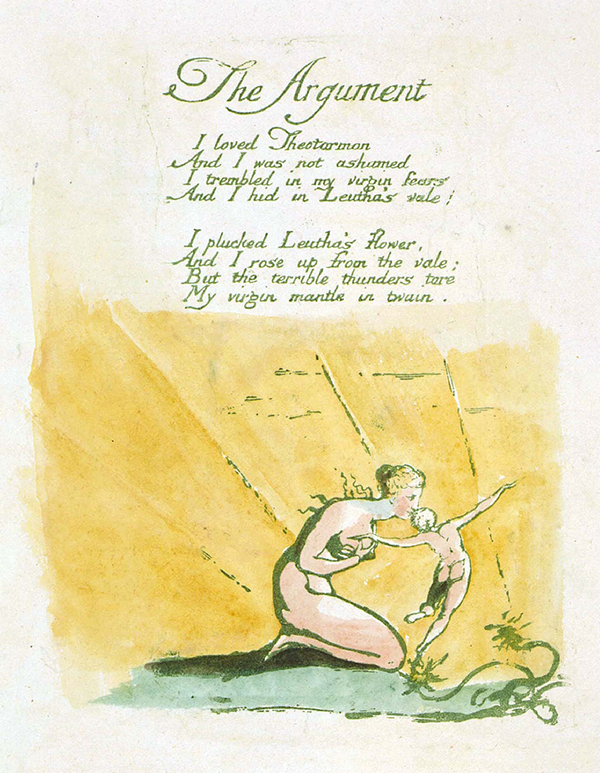 The Argument
I loved Theotormon
And I was not ashamed
I trembled in my virgin fears
And I hid in Leutha's vale;
I plucked Leutha's flower,
And I rose up from the vale;
But the terrible thunders tore
My virgin mantle in twain.